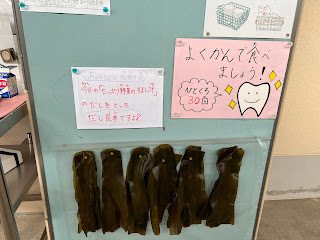 今日の「たっぷり野菜のすまし汁」
のだしをとった
だし昆布ですよ♪
よくかんで食べ
ましょう！
ひとくち
30回